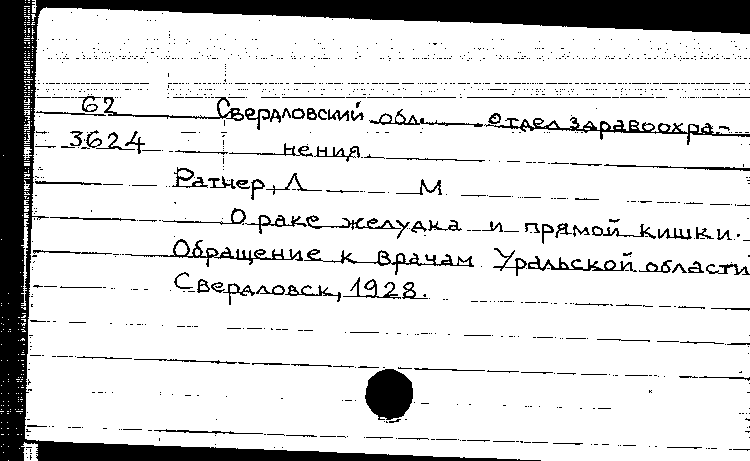 62 Свердловский обл. отдел здравоохра-
3624 нения.
Ратнер, Л М
О раке желудка и прямой кишки.
Обращение к врачам Уральской области
Свердловск, 1928.